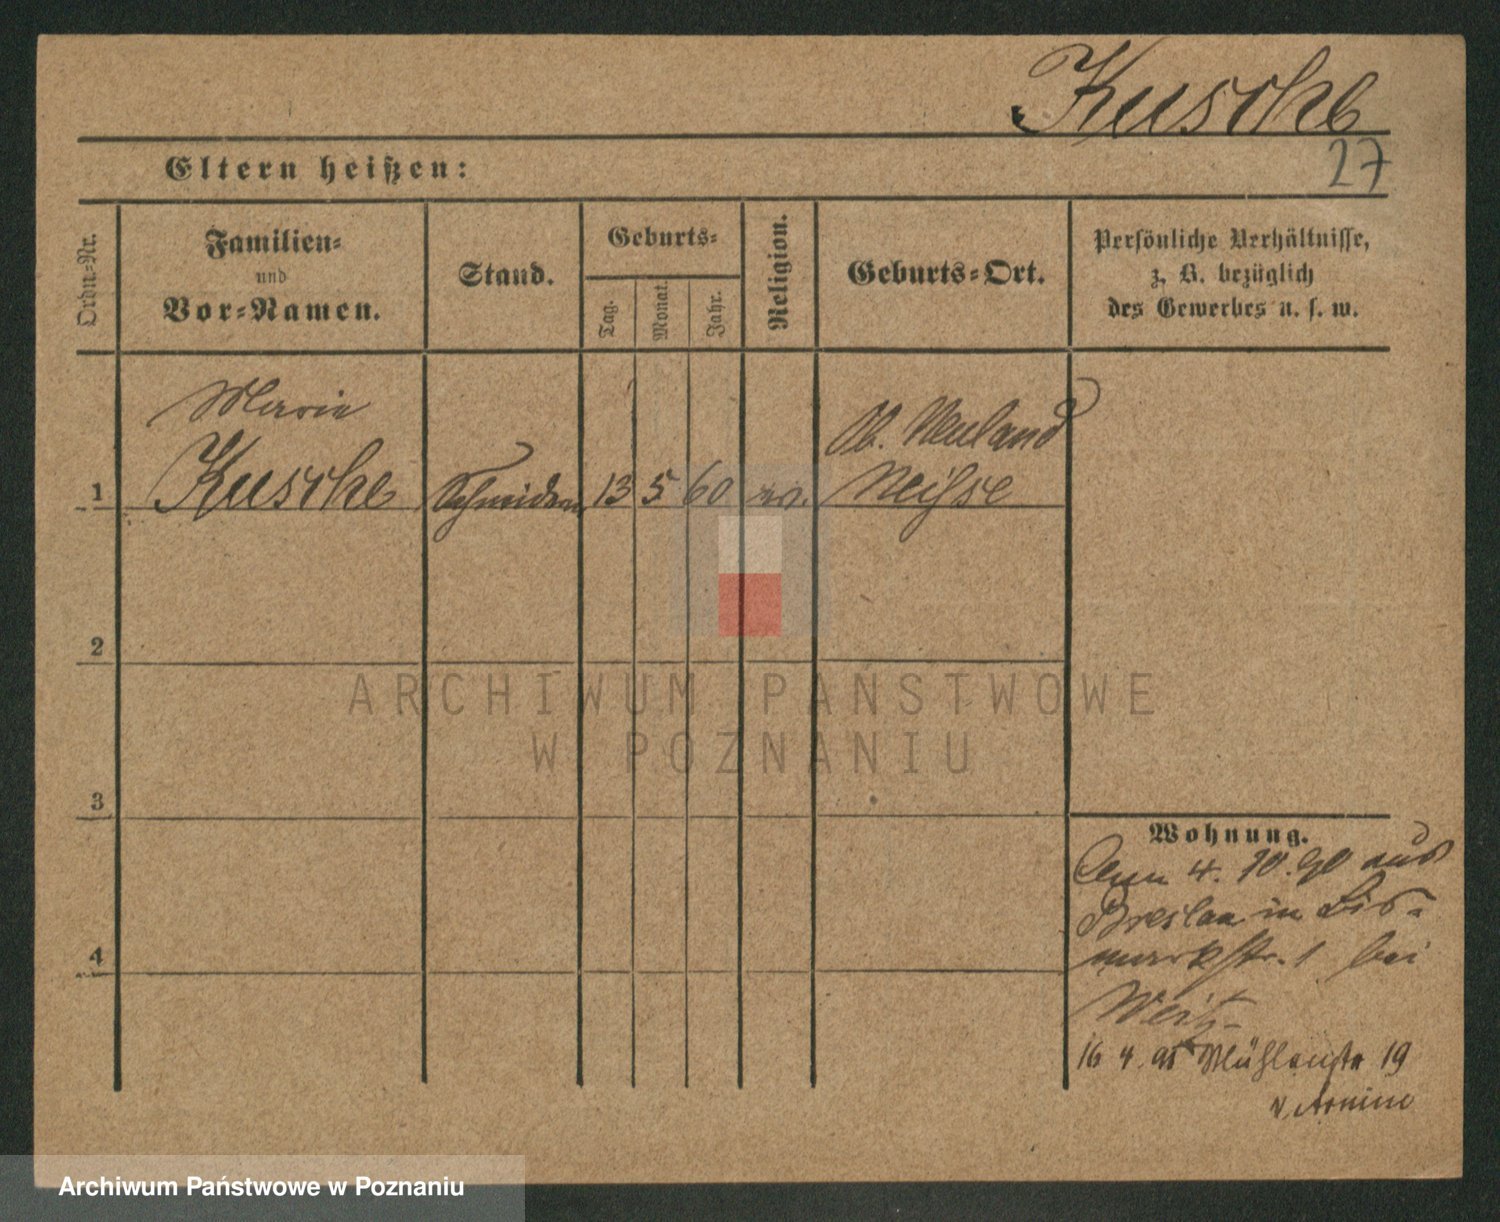 Kusche
27
Eltern heißen:
Ordn.-Nr.
Familien-
und
Vor-Namen.
Stand.
Geburts-
Tag.
Monat.
Jahr.
Religion.
Geburts-Ort.
Persönliche Verhältnisse,
z. B. bezüglich
des Gewerbes u. s. w.
Marie
1 Kusche
Schneiderin
13 5 60
Ob. Neuland
Neisse
2
3
4
Wohnung.
4. 10. 90 aus
Breslau in Bis-
markstr. 1 bei
16 4. 91 Mühlenstr 19
ARCHIWUM PAŃSTWOWE
W POZNANIU
Archiwum Państwowe w Poznaniu